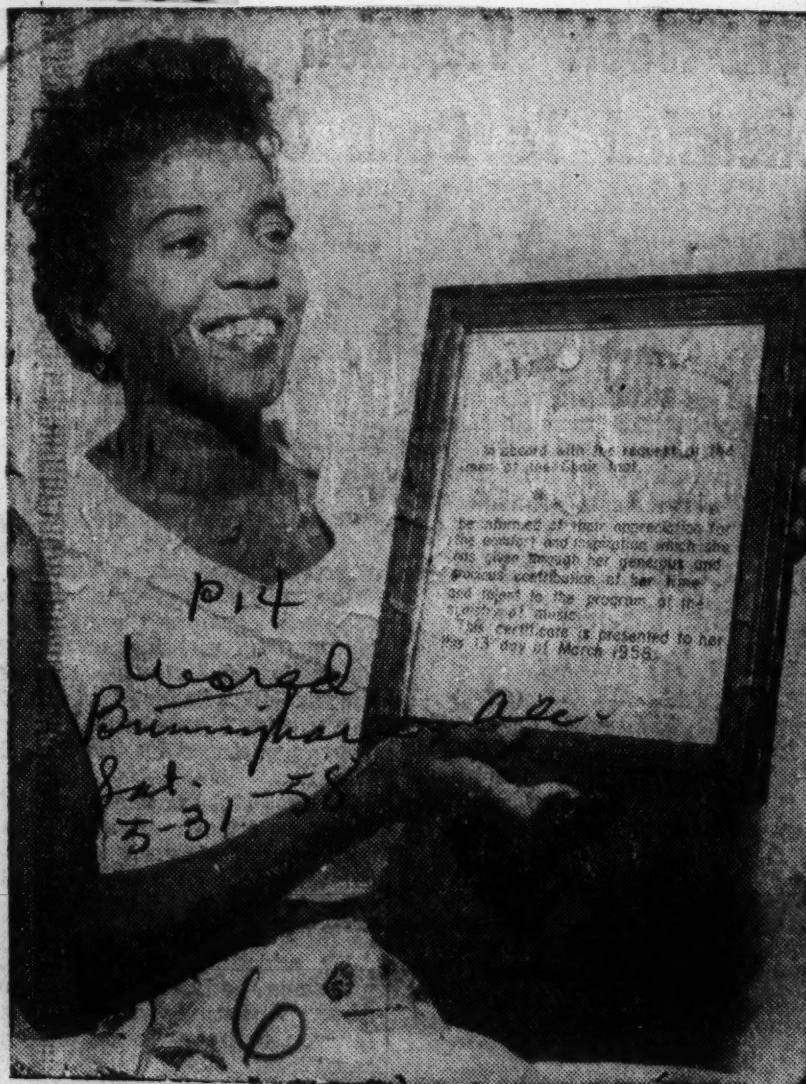 In accord with the request of the
men of the Choir that
be informed of their appreciation for
the comfort and inspiration which she
has given through her generous and
gracious contribution of her time
and talent to the program of the
ministry of music.
This certificate is presented to her
this 13 day of March 1958.
P.14
World
Birmingham Ala.
Sat.
5-31-58
6